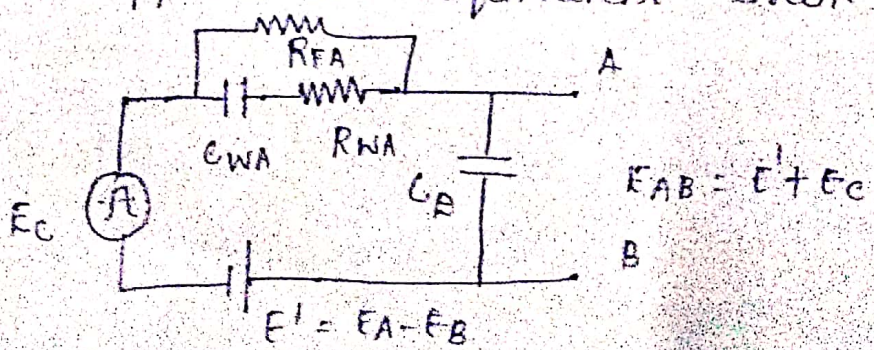 R_FA
A
C_WA R_WA
C_B
E_AB = E' + E_C
E_C
B
E' = E_A - E_B